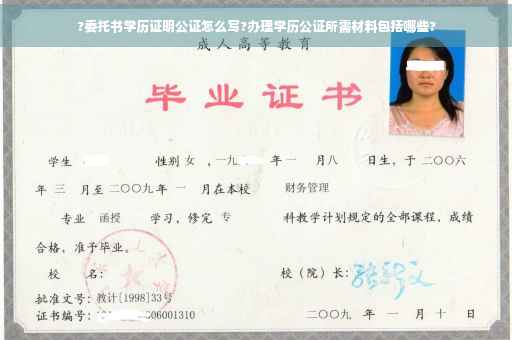 ?委托书学历证明公证怎么写?办理学历公证所需材料包括哪些?
成人高等教育
毕业证书
学生 性别 女 ，一九 年 一 月八 日生，于 二〇〇六
年 三 月至 二〇〇九 年 一 月在本校 财务管理
专业 函授 学习，修完 专 科教学计划规定的全部课程，成绩
合格，准予毕业。
校 名： 校（院）长：
批准文号：教计[1998]33号
证书编号： 06001310 二〇〇九 年 一 月 十 日